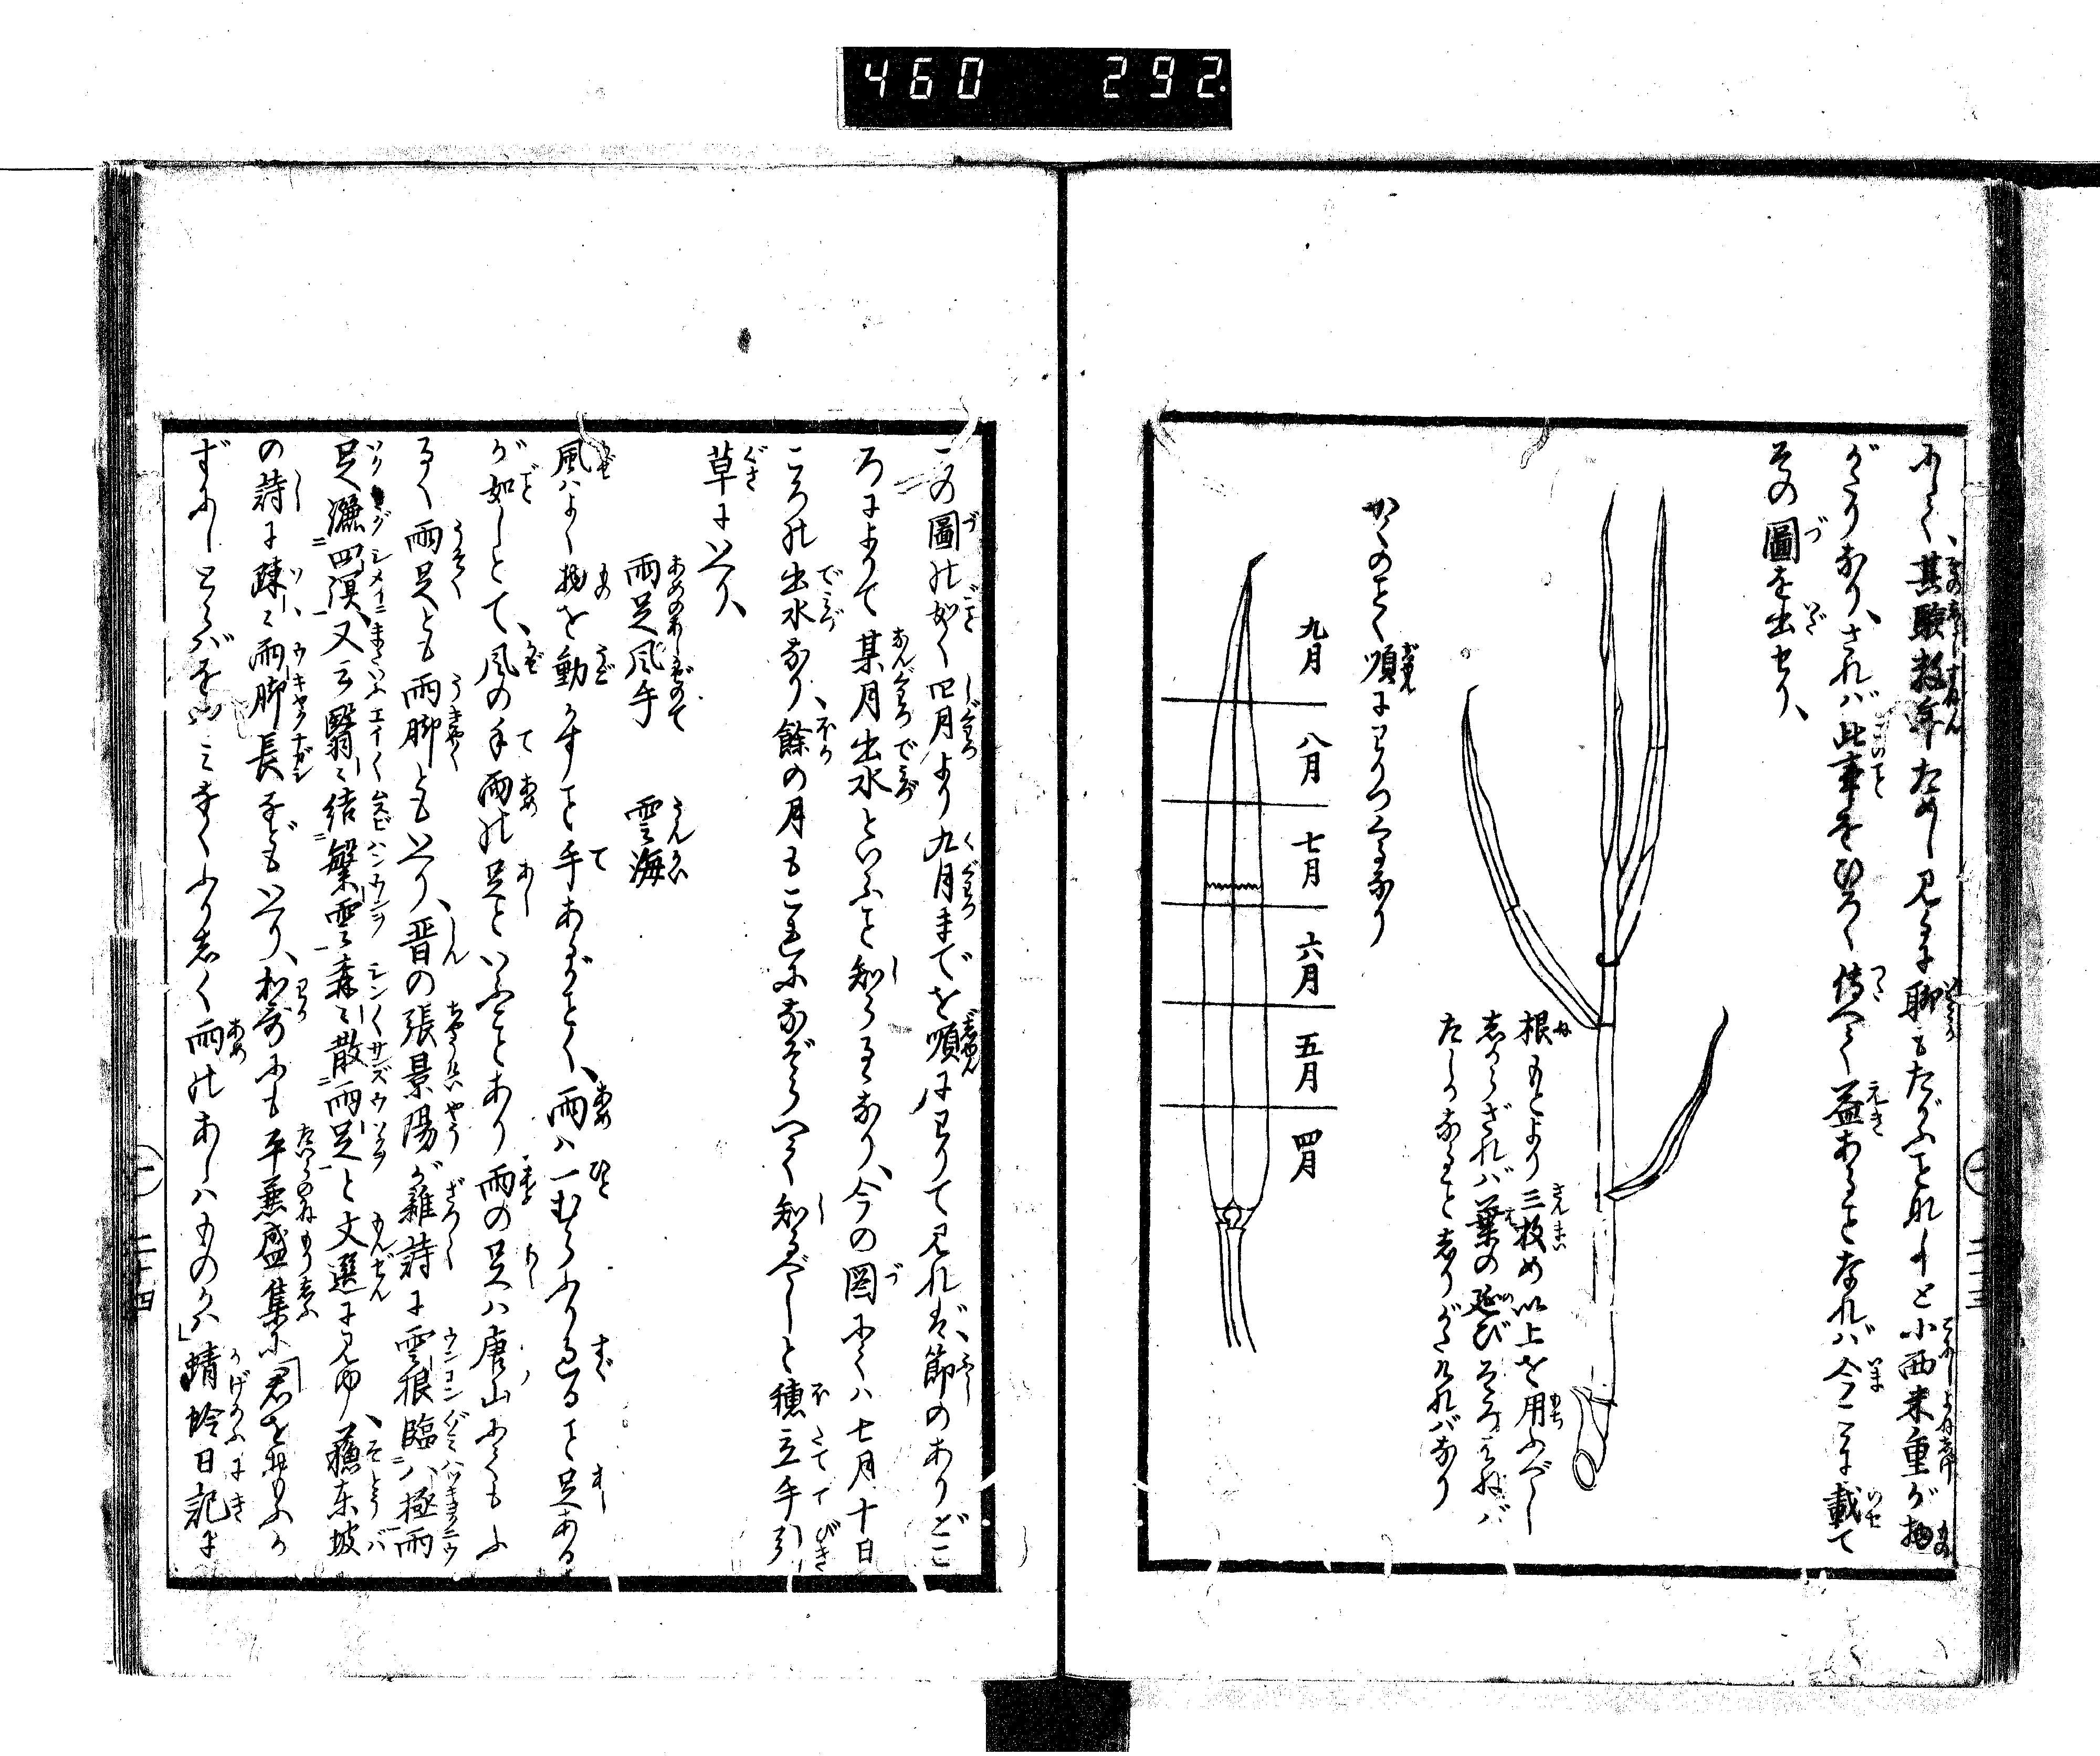 460 292.
ふしく、其驗数年ためし見るに聊もたがふことなしと小西米重が物
がたりなり、されバ此事をひろく傳へて益あることなれバ今こゝに載て
その圖を出せり、
根もとより三枚め以上を用ふべし
しからざれバ葉の延びそろはねバ
たしかなること知りがたけれバなり
かくのごとく順にわりつくるなり
九月
八月
七月
六月
五月
四月
二十三
この圖の如く四月より九月までを順にわりて見れバ、節のありどこ
ろによりて某月出水といふこと知らるゝなり、今の圖にてハ七月十日
ころの出水なり、餘の月もこれになぞらへて知るべしと穗立手引
草にいへり、
雨足風手 雲海
風ハよく物を動かすこと手あるがごとく、雨ハ一むらふり過ること足ある
が如しとて、風の手雨の足といふことあり雨の足ハ唐山にてもふ
るく雨足とも雨脚ともいへり、晋の張景陽が雜詩に雲根臨八極雨
足灑四溟、又云翳々結繁雲森々散雨足と文選に見ゆ、蘓東坡
の詩に疎々雨脚長などもいへり、和哥にも平兼盛集に「君を思ふか
ずにしとらバをやみなくふりしく雨のあしハものかハ」蜻蛉日記に
二十四